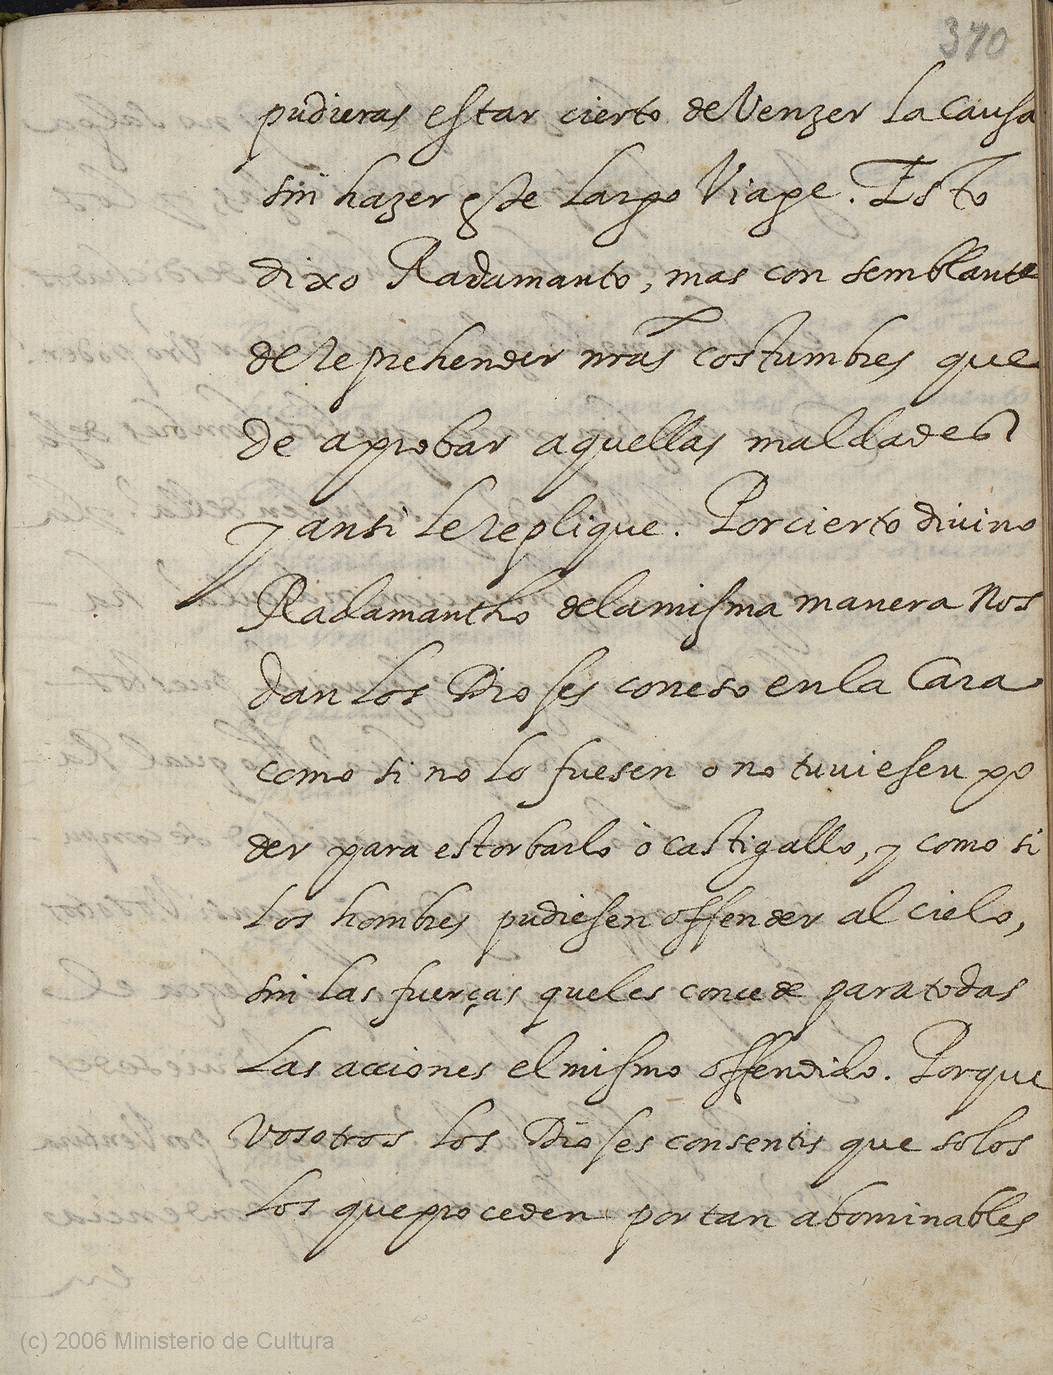 370
pudieras estar cierto de Venzer la Causa
sin hazer este largo Viage. Esto
dixo Radamanto, mas con semblante
de reprehender nras costumbres que
de aprobar aquellas maldades
y ansi le replique. Por cierto divino
Radamantho de la misma manera Nos
dan los Dioses con eso en la Cara
como si no lo fuesen o no tuviesen po
der para estorbarlo ò castigallo, y como si
los hombres pudiesen offender al cielo,
sin las fuerças que les concede para todas
las acciones el mismo offendido. Porque
Vosotros los Dioses consentis que solos
los que proceden por tan abominables
(c) 2006 Ministerio de Cultura